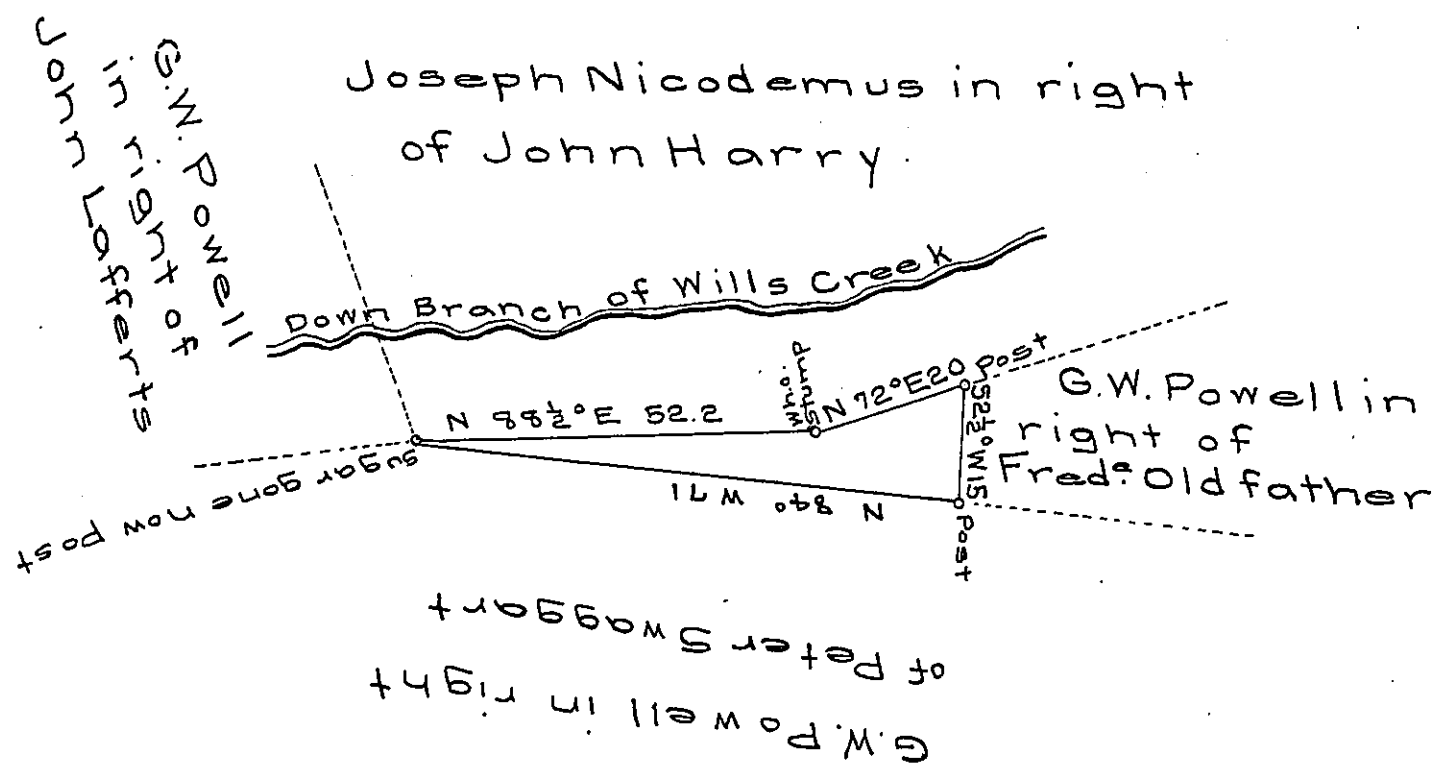 Joseph Nicodemus in right
of John Harry.
G.W. Powell
in right of
John Lafferts
Down Branch of Wills Creek
N 88½° E 52.2
wh.o.
stump
N 72° E 20
Post
S 2½° W 15.
Post
N 84° W 71
sugar gone now post
G.W. Powell in
right of
Fred.ᵏ Oldfather
G.W. Powell in right
of Peter Swaggart